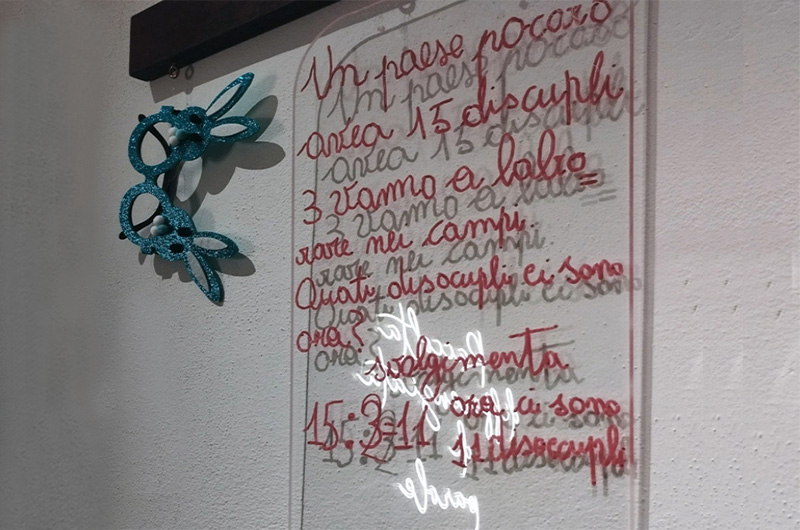 Un paese pocoro
avea 15 discupli
3 vanno a labo=
rare nei campi.
Quati disocupli ci sono
ora?
svolgimenta
15:3=11 ora ci sono
11 disoccupli
parole